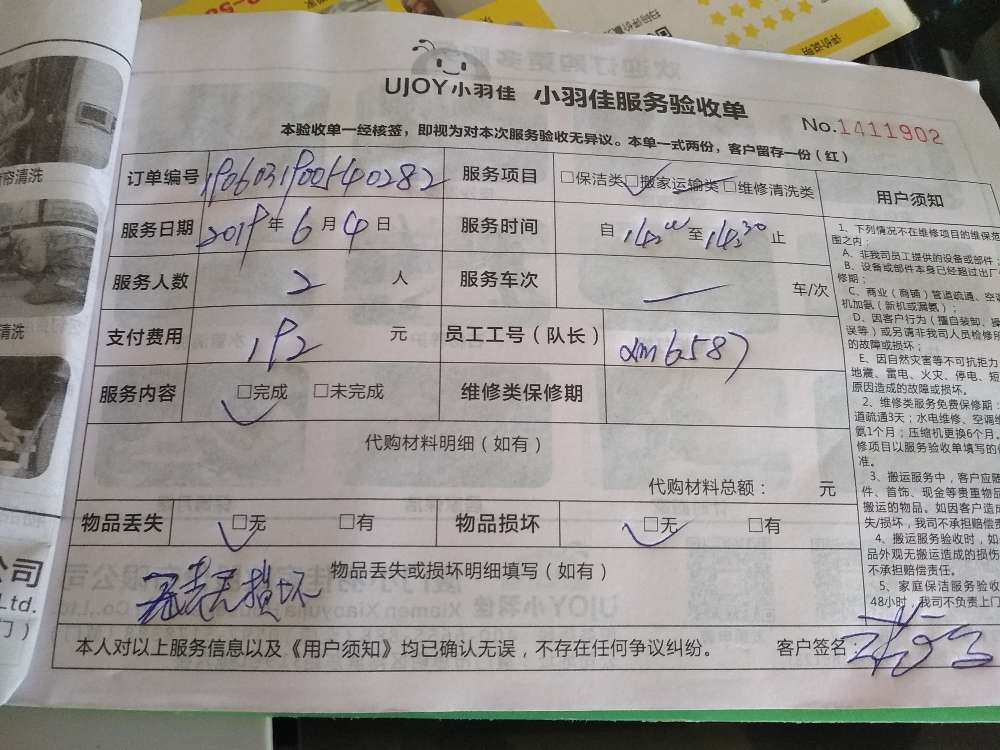 UJOY小羽佳 小羽佳服务验收单
No.1411902
本验收单一经核签，即视为对本次服务验收无异议。本单一式两份，客户留存一份（红）
订单编号 服务项目 □保洁类 □搬家运输类 □维修清洗类
服务日期 2019年6月4日 服务时间 自 至 止
服务人数 2 人 服务车次 车/次
支付费用 192 元 员工工号（队长） xm6587
服务内容 □完成 □未完成 维修类保修期
代购材料明细（如有）
代购材料总额： 元
物品丢失 □无 □有 物品损坏 □无 □有
物品丢失或损坏明细填写（如有）
无丢损坏
本人对以上服务信息以及《用户须知》均已确认无误，不存在任何争议纠纷。 客户签名：
用户须知
1、下列情况不在维修项目的维保范
围之内：
A、非我司员工提供的设备或部件；
B、设备或部件本身已经超过出厂
修期；
C、商业（商铺）管道疏通、空调
机加氨（新机或漏氨）；
D、因客户行为（擅自装卸、操
误等）或另请非我司人员检修所
的故障或损坏；
E、因自然灾害等不可抗拒力
地震、雷电、火灾、停电、短
原因造成的故障或损坏。
2、维修类服务免费保修期：
道疏通3天；水电维修、空调维
氨1个月；压缩机更换6个月。
修项目以服务验收单填写的
准。
3、搬运服务中，客户应
件、首饰、现金等贵重物
搬运的物品。如因客户造成
失/损坏，我司不承担赔偿责
4、搬运服务验收时，如
品外观无搬运造成的损伤
不承担赔偿责任。
5、家庭保洁服务验收
48小时，我司不负责上门
帘清洗
清洗
公司
Ltd.
门）